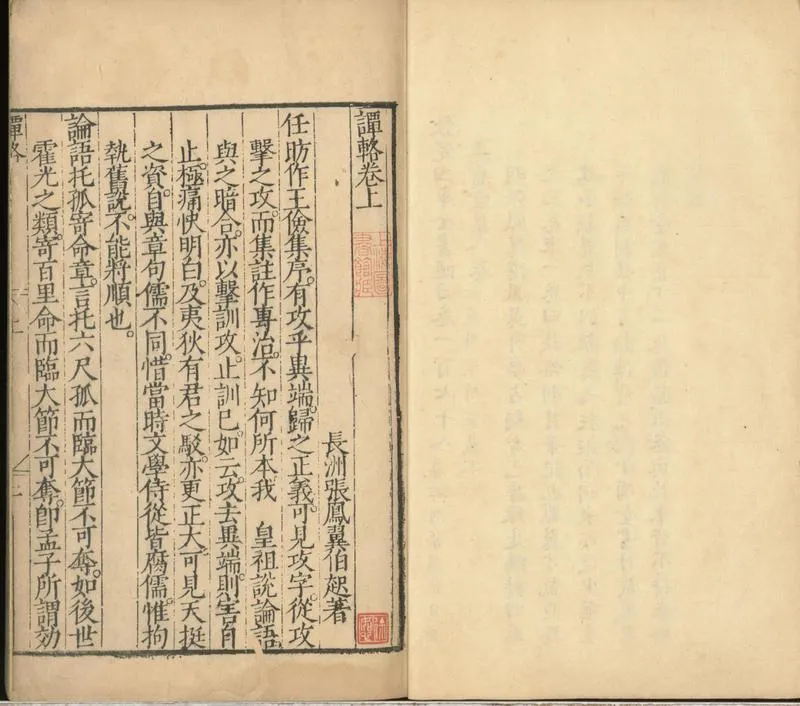 譚輅卷上
長洲張鳳翼伯起著
任昉作王儉集序。有攻乎異端。歸之正義。可見攻字從攻
擊之攻。而集註作專治。不知何所本我 皇祖說論語
與之暗合。亦以擊訓攻。止訓已。如云。攻去異端。則害自
止。極痛快明白。及夷狄有君之駁。亦更正大。可見天挺
之資。自與章句儒不同。惜當時文學侍從皆腐儒。惟拘
執舊說。不能將順也。
論語托孤寄命章。言托六尺孤而臨大節不可奪。如後世
霍光之類。寄百里命而臨大節不可奪。即孟子所謂効
譚輅